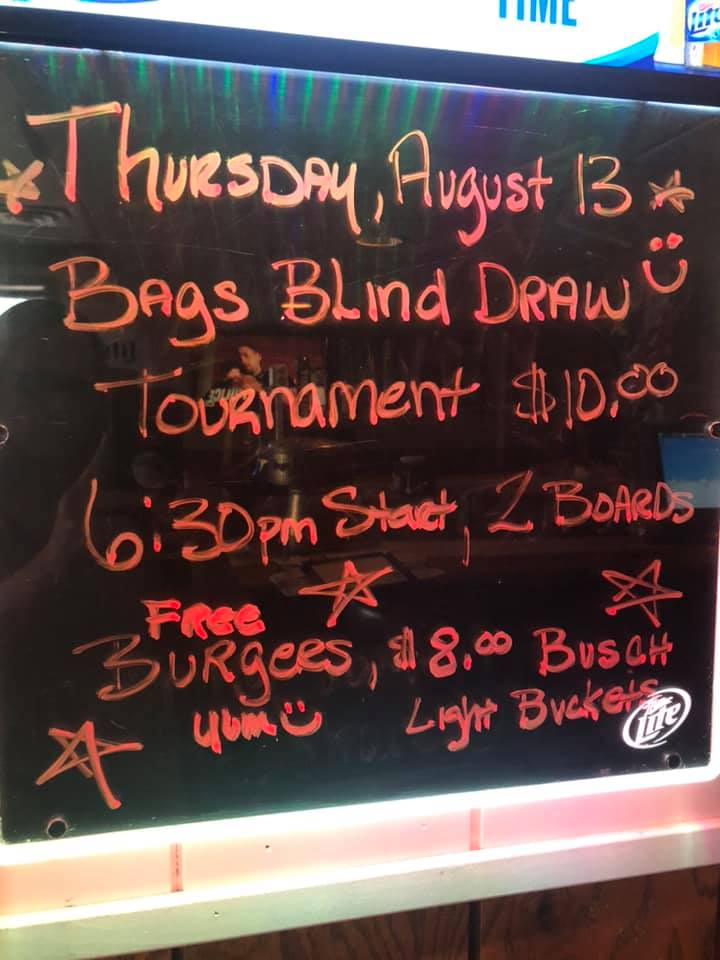 TIME
Lite
THURSDAY, AUGUST 13
BAGS BLIND DRAW
TOURNAMENT $10.00
6:30pm Start, 2 BOARDS
FREE
BURGEES, $8.00 BUSCH
yum Light Buckets
Lite